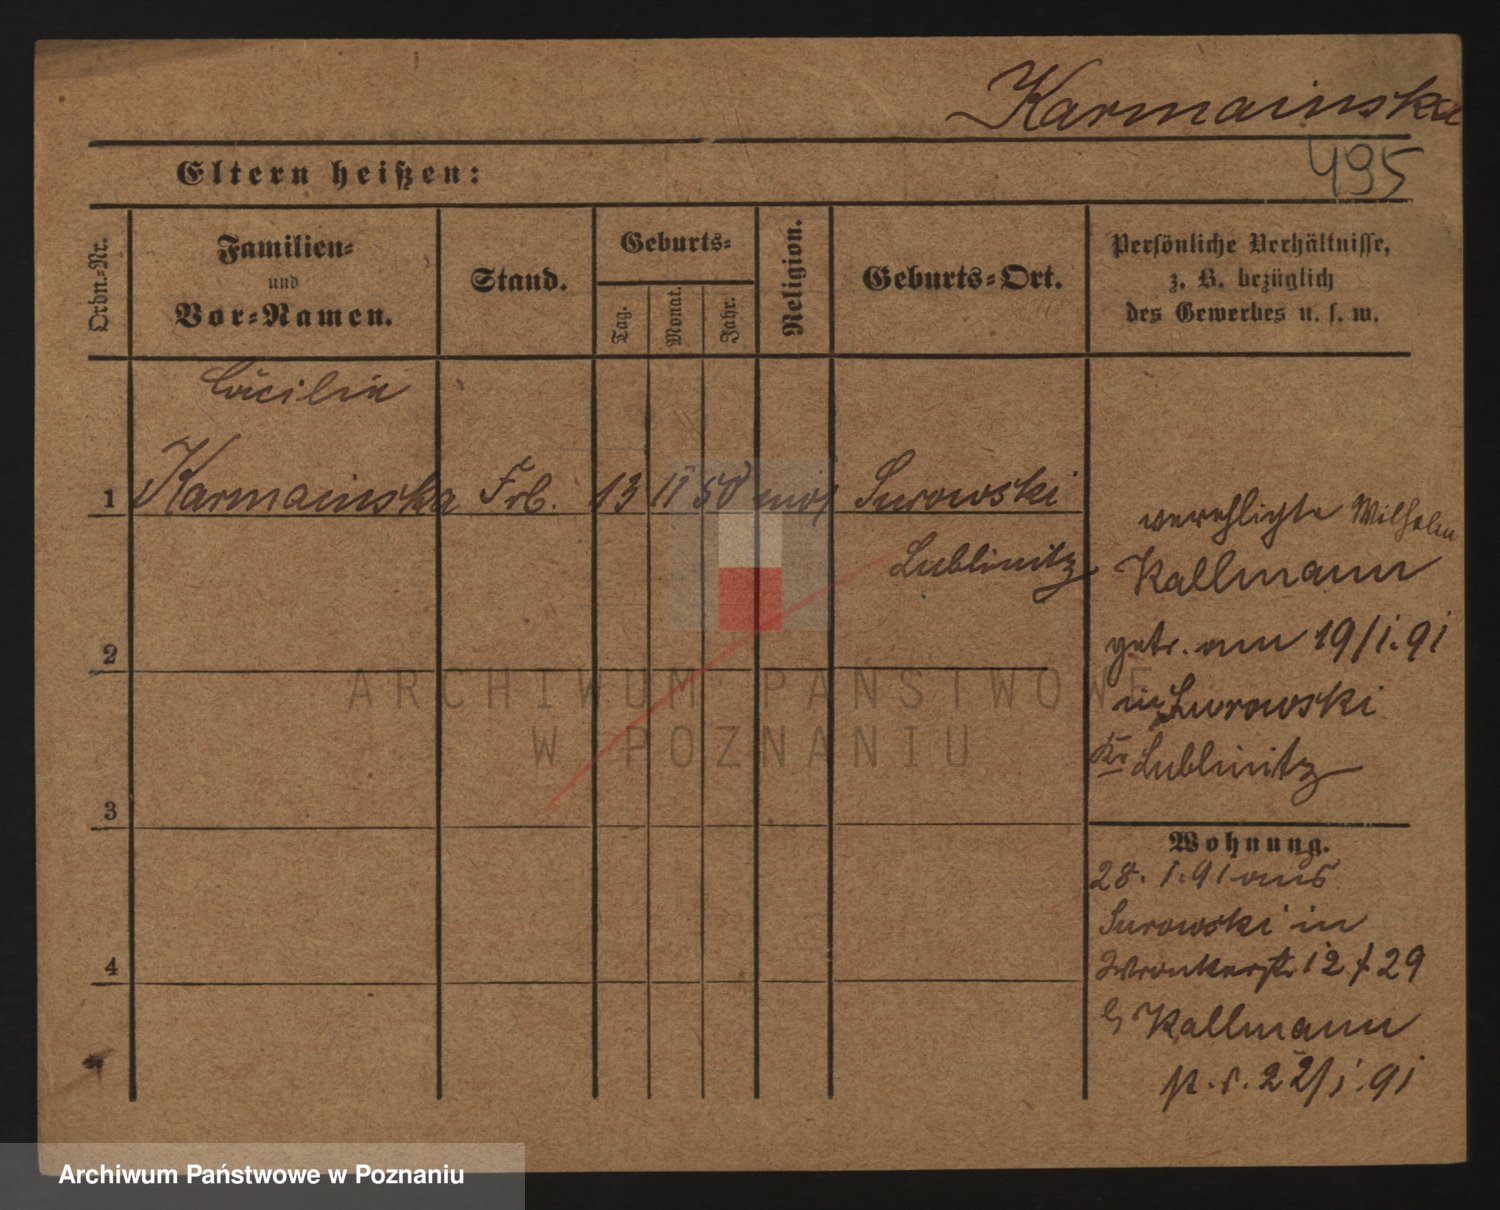 Karmainska
495
Eltern heißen:
Ordn.-Nr.
Familien-
und
Vor-Namen.
Stand.
Geburts-
Tag.
Monat.
Jahr.
Religion.
Geburts-Ort.
Persönliche Verhältnisse,
z. B. bezüglich
des Gewerbes u. s. w.
Cäcilie
1 Karmainska Frl. 13 11 Surowski
Lublinitz
verehligte Wilhelm
Kallmann
getr. am 19/1.91
in Surowski
Kr Lublinitz
2
3
4
Wohnung.
28.1.91 aus
Surowski in
Wronkerstr 12 29
Kallmann
22/1.91
ARCHIWUM PAŃSTWOWE
W POZNANIU
Archiwum Państwowe w Poznaniu